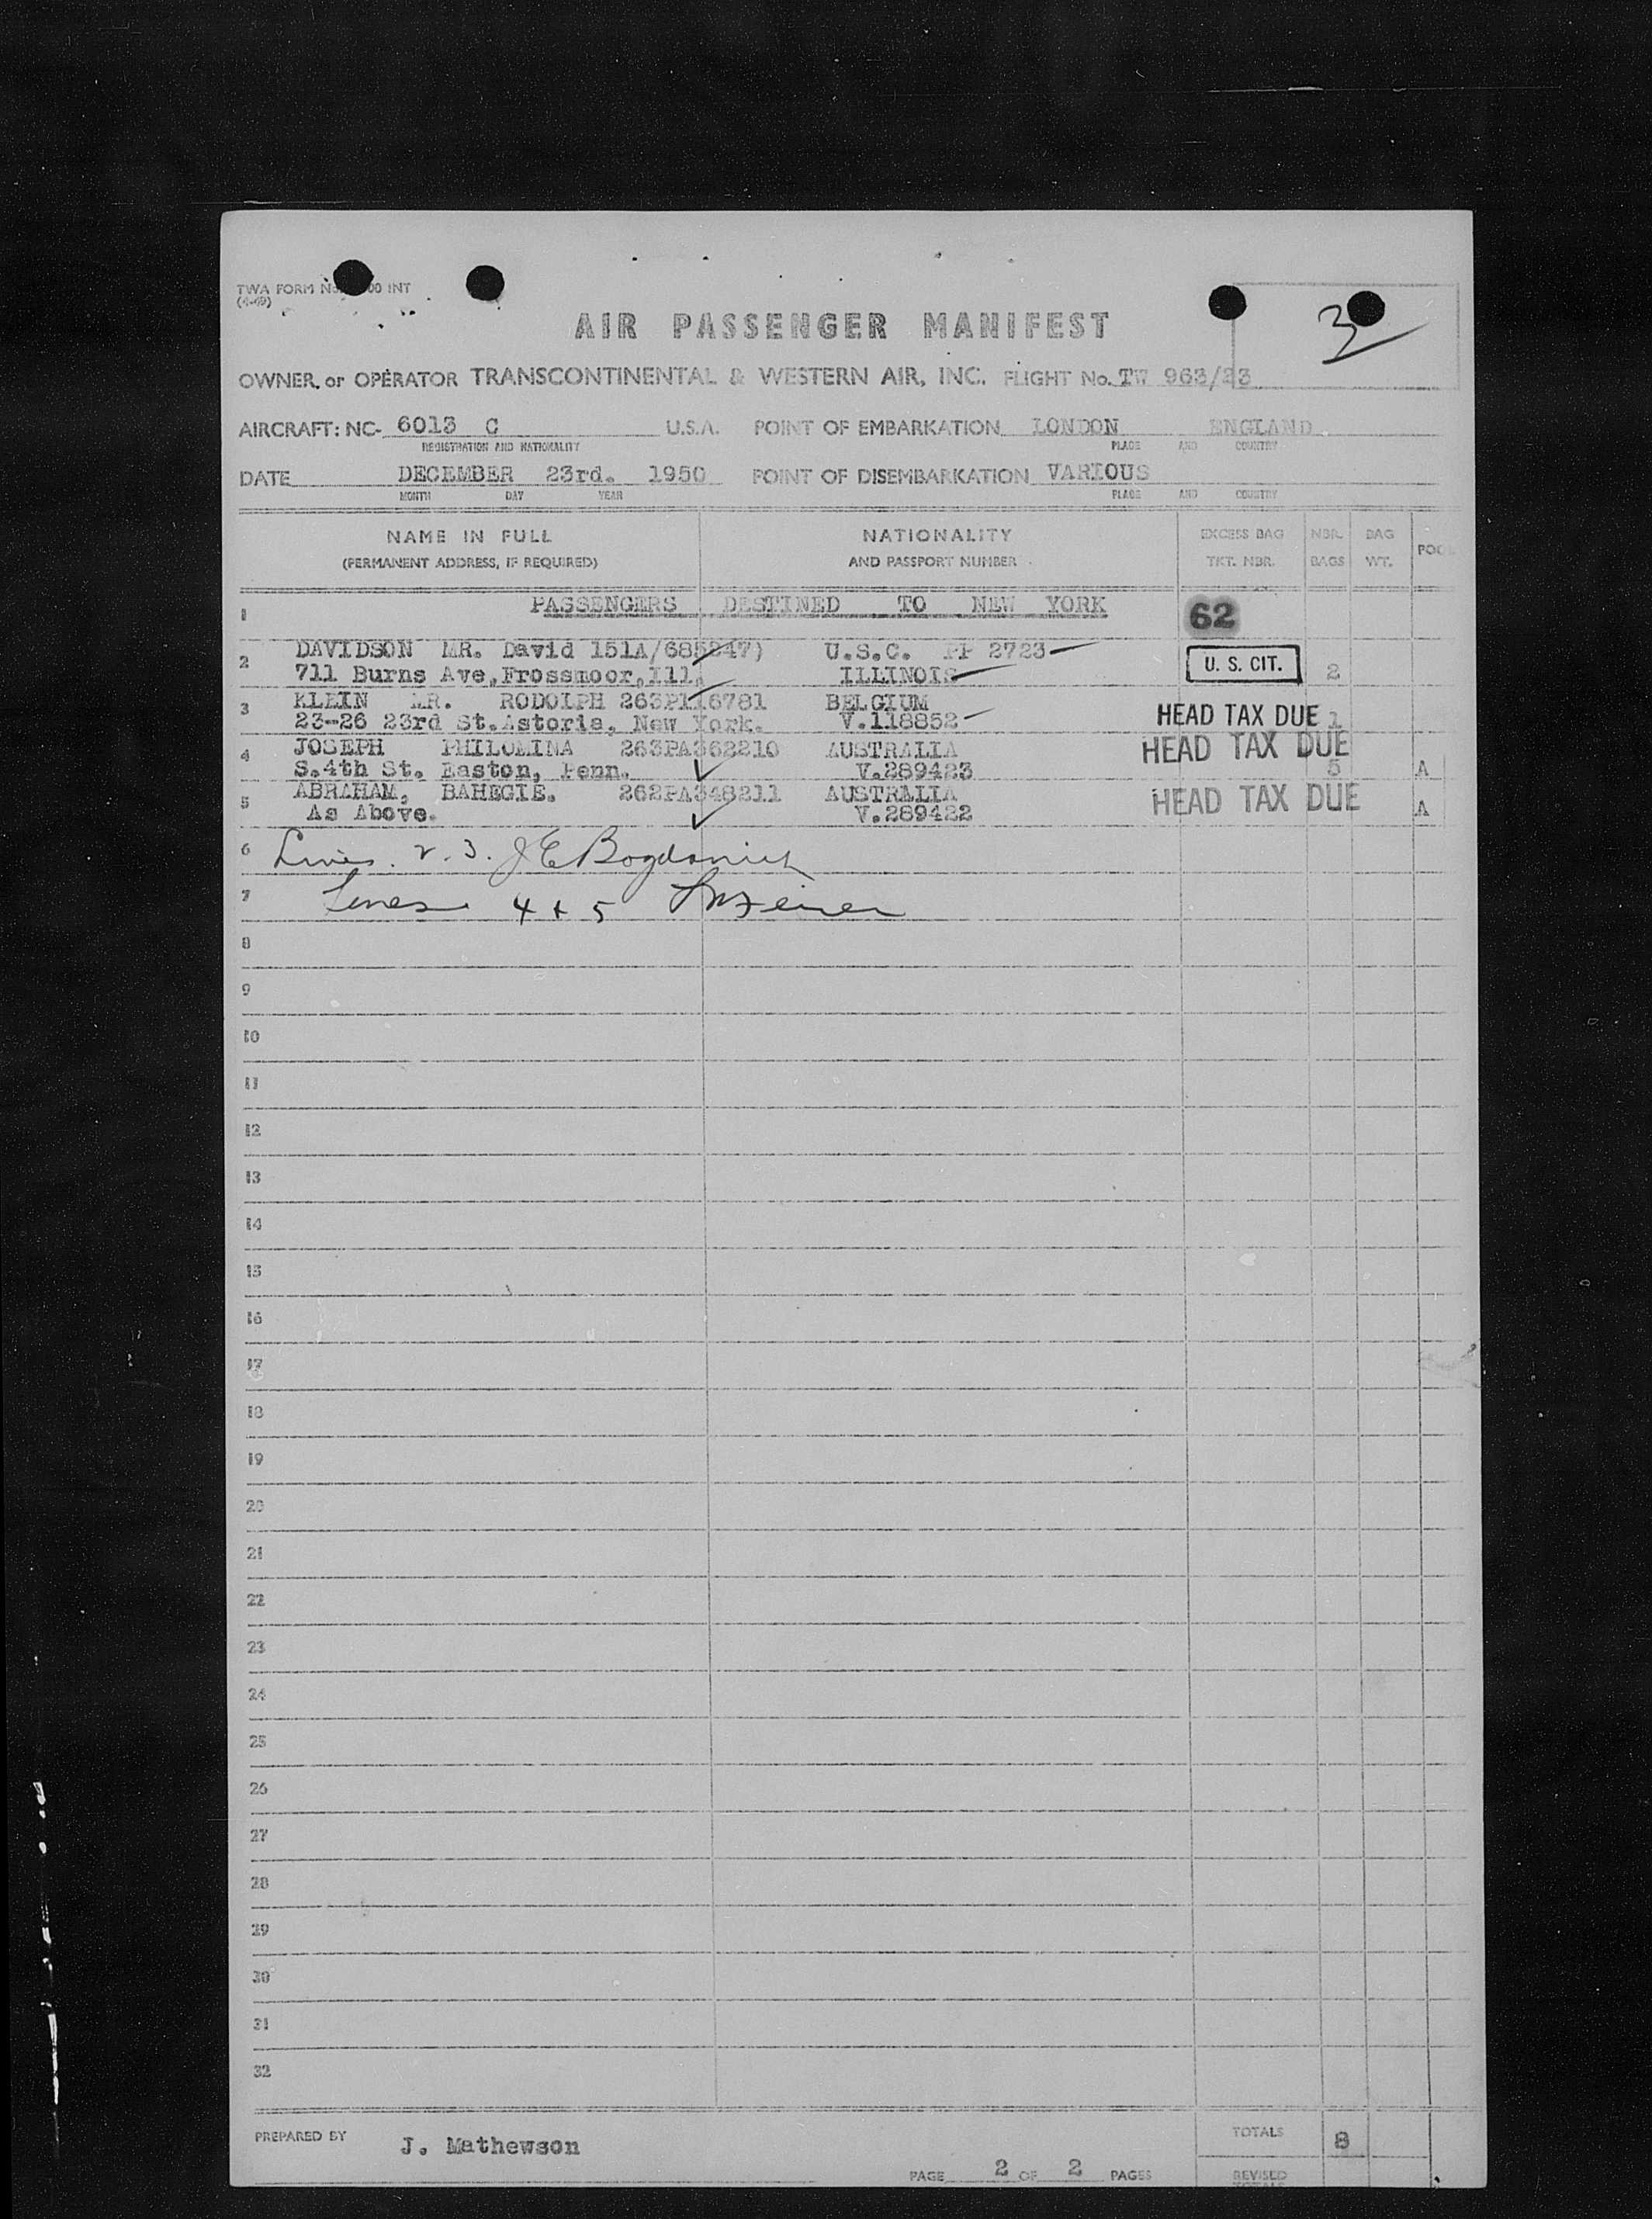 TWA FORM No. 00 INT
(4-49)
3
AIR PASSENGER MANIFEST
OWNER or OPERATOR TRANSCONTINENTAL & WESTERN AIR, INC. FLIGHT No. TW 963/23
AIRCRAFT: NC- 6013 C U.S.A. POINT OF EMBARKATION LONDON ENGLAND
REGISTRATION AND NATIONALITY PLACE AND COUNTRY
DATE DECEMBER 23rd. 1950 POINT OF DISEMBARKATION VARIOUS
MONTH DAY YEAR PLACE AND COUNTRY
NAME IN FULL NATIONALITY EXCESS BAG NBR. BAG
(PERMANENT ADDRESS, IF REQUIRED) AND PASSPORT NUMBER TKT. NBR. BAGS WT. POOL
1 PASSENGERS DESTINED TO NEW YORK 62
2 DAVIDSON MR. David 151A/685247) U.S.C. PP 2723
711 Burns Ave,Frossmoor,Ill. ILLINOIS U. S. CIT. 2
3 KLEIN MR. RODOLPH 263P116781 BELGIUM
23-26 23rd St.Astoria, New York. V.118852 HEAD TAX DUE 1
4 JOSEPH PHILOMINA 263PA362210 AUSTRALIA HEAD TAX DUE
S.4th St. Easton, Penn. V.289423 5 A
5 ABRAHAM, BAHEGIE. 262PA348211 AUSTRALIA HEAD TAX DUE
As Above. V.289422 A
6 Lines. 2. 3. J E Bogdanich
7 Lines 4 + 5
8
9
10
11
12
13
14
15
16
17
18
19
20
21
22
23
24
25
26
27
28
29
30
31
32
PREPARED BY J. Mathewson TOTALS 8
PAGE 2 OF 2 PAGES REVISED
TOTALS